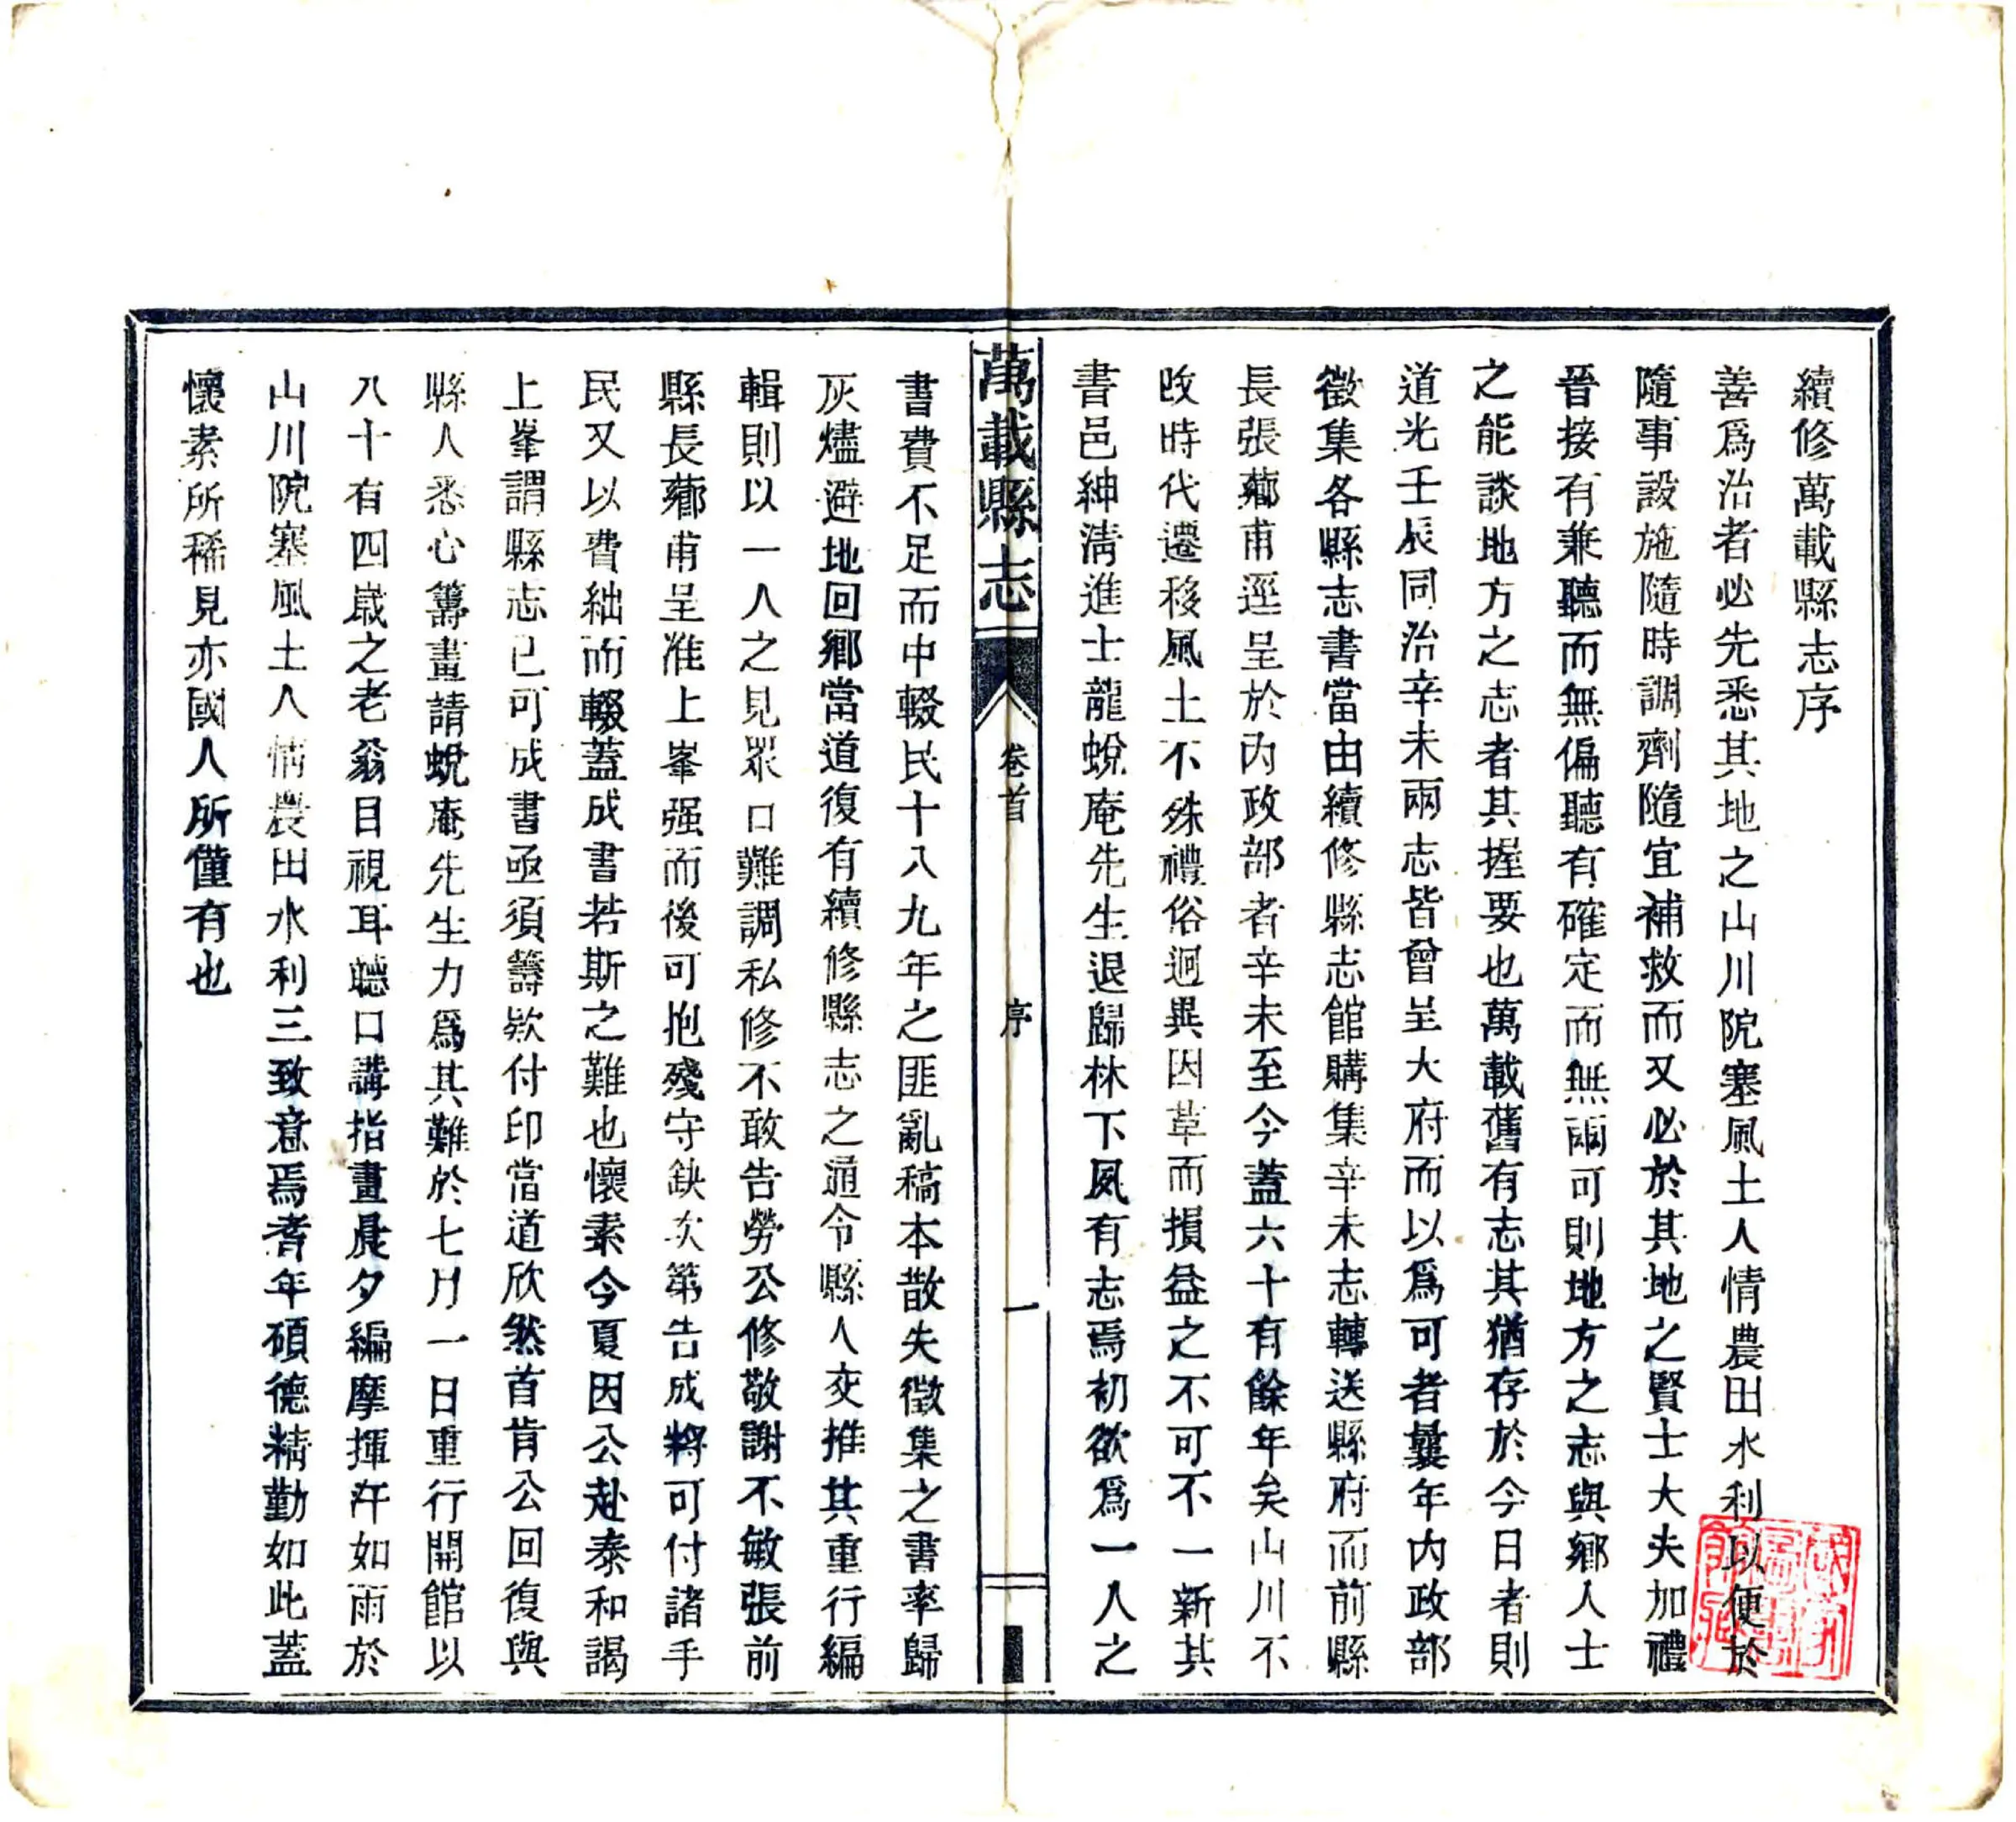 續修萬載縣志序
善爲治者必先悉其地之山川阨塞風土人情農田水利以便於
隨事設施隨時調劑隨宜補救而又必於其地之賢士大夫加禮
晉接有兼聽而無偏聽有確定而無兩可則地方之志與鄉人士
之能談地方之志者其握要也萬載舊有志其猶存於今日者則
道光壬辰同治辛未兩志皆曾呈大府而以爲可者曩年內政部
徵集各縣志書當由續修縣志館購集辛未志轉送縣府而前縣
長張薌甫逕呈於內政部者辛未至今蓋六十有餘年矣山川不
改時代遷移風土不殊禮俗迥異因革而損益之不可不一新其
書邑紳淸進士龍蛻庵先生退歸林下夙有志焉初欲爲一人之
萬載縣志 卷首 序 一
書費不足而中輟民十八九年之匪亂稿本散失徵集之書率歸
灰燼避地回鄉當道復有續修縣志之通令縣人交推其重行編
輯則以一人之見眾口難調私修不敢告勞公修敬謝不敏張前
縣長薌甫呈准上峯强而後可抱殘守缺次第告成將可付諸手
民又以費絀而輟蓋成書若斯之難也懷素今夏因公赴泰和謁
上峯謂縣志已可成書亟須籌欵付印當道欣然首肯公回復與
縣人悉心籌畫請蛻庵先生力爲其難於七月一日重行開館以
八十有四歲之老翁目視耳聽口講指畫晨夕編摩揮汗如雨於
山川阨塞風土人情農田水利三致意焉耆年碩德精勤如此蓋
懷素所稀見亦國人所僅有也